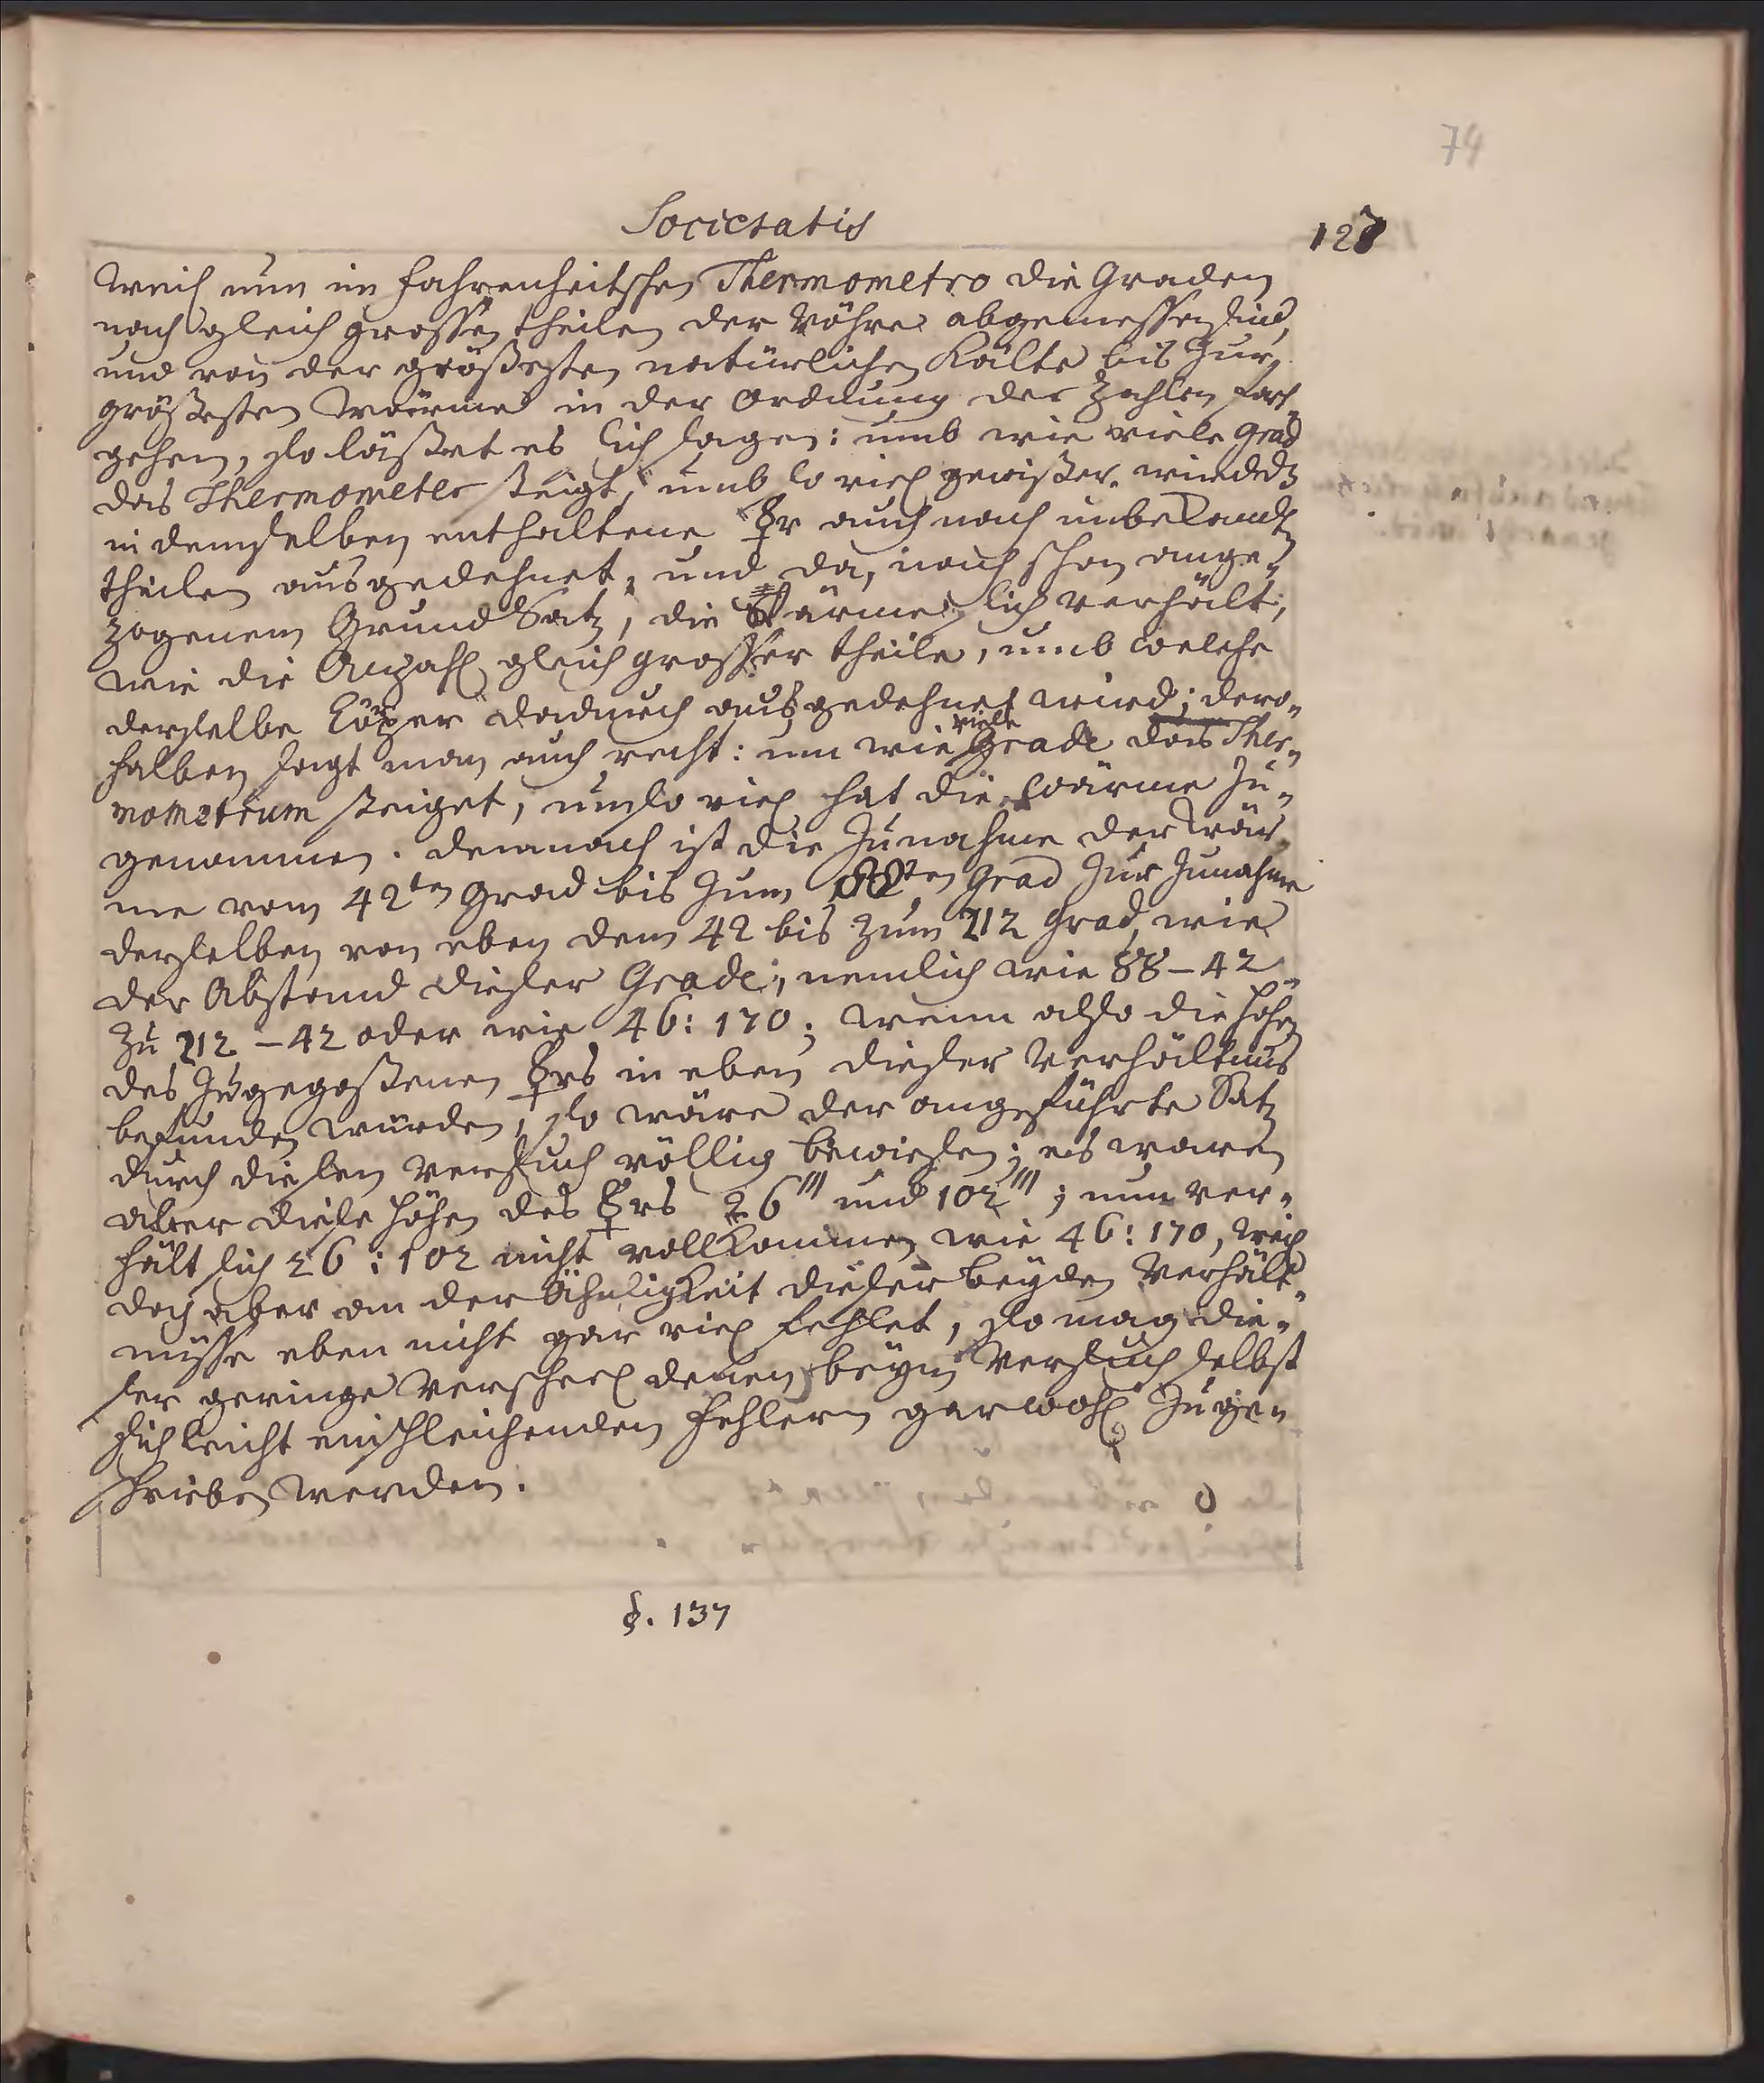 74
Societatis 127
Weil nun im Fahrenheitschen Thermometro die Graden
nach gleich grossen theilen der Röhre abgemessen sind,
und von der größesten natürlichen Kälte bis zur
größesten Wärme in der Ordnung der Zahlen fort
gehen, so läßet es sich sagen: umb wie viele Grad
das Thermometer steigt, umb so viel gewißer wird dz
in demselben enthaltene ☿r auch nach unbekandten
theilen ausgedehnet, und da, nach schon ange„
zogenem Grund Satz, die Wärme sich verhält,
wie die Anzahl gleich grosser theile, umb welche
derselbe Cörper dadurch ausgedehnet wird; dero„
halben sagt man auch recht: um wie viele Grade das Ther„
mometrum steiget, um so viel hat die Wärme zu„
genommen. Demnach ist die Zunahme der Wär„
me vom 42ten Grad bis zum 88ten Grad zur Zunahme
derselben von eben dem 42 bis zum 212 Grad, wie
der Abstand dieser Grade, nemlich wie 88 – 42
zu 212 – 42 oder wie 46: 170; wenn also die Höhen
des zugegoßenen ☿rs in eben dieser Verhältnus
befunden würden, so wäre der angeführte Satz
durch diesen Versuch völlig bewiesen; es waren
aber diese Höhen des ☿rs 26''' und 102'''; nun ver„
hält sich 26 : 102 nicht vollkommen wie 46: 170, weil
doch aber an der Ähnligkeit dieser beyden Verhält„
nüsse eben nicht gar viel fehlet, so mag die„
ser geringe Verscheel denen beym Versuch selbst
sich leicht einschleichenden Fehlern gar wohl zuge„
schrieben werden.
§. 137